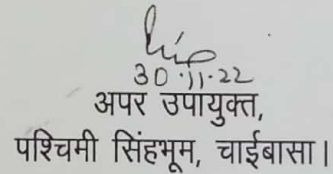 30.11.22
अपर उपायुक्त,
पश्चिमी सिंहभूम, चाईबासा।